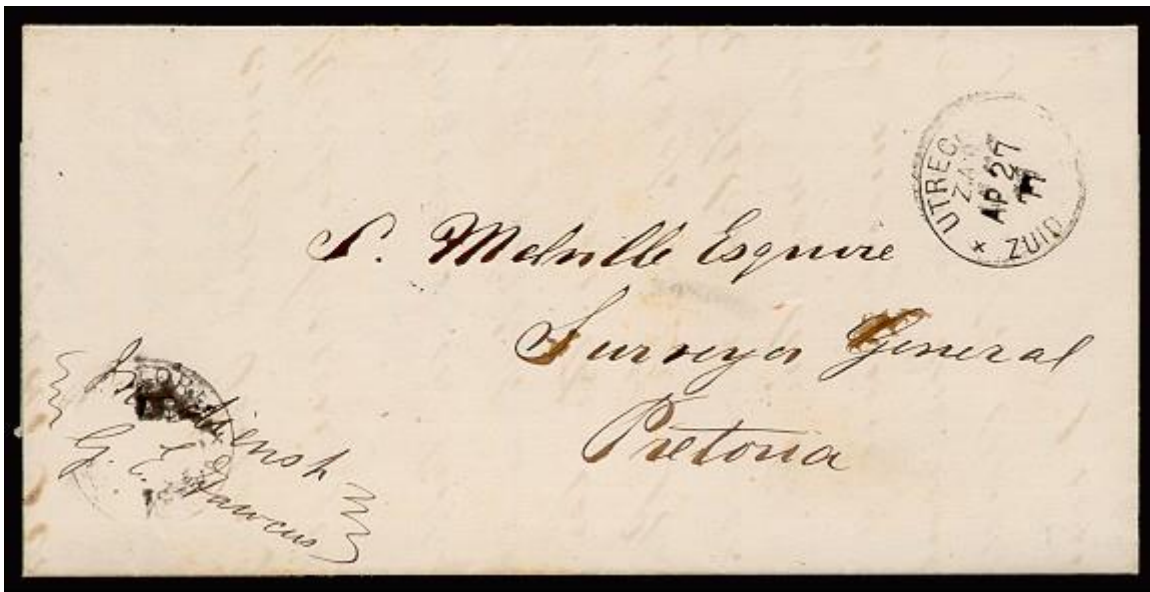 UTREC
AP 27
77
ZUID
S. Melville Esquire
Surveyor General
Pretoria
In dienst
G.